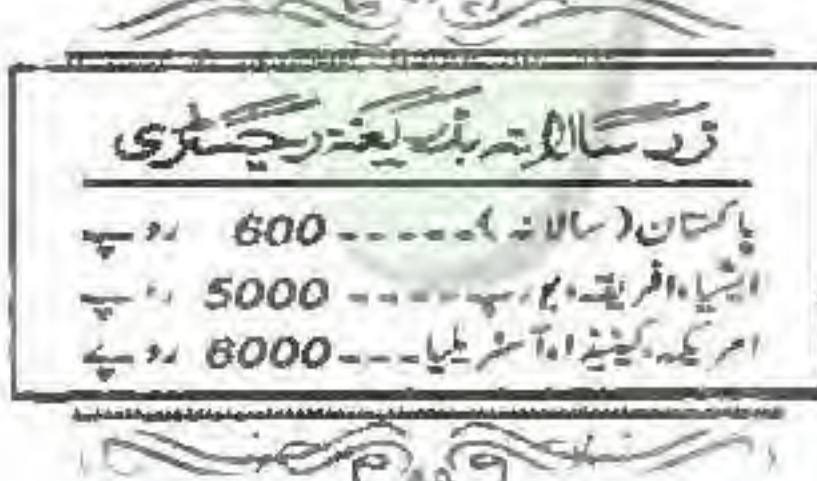 زرِ سالانہ بذریعہ رجسٹری
پاکستان (سالانہ) ----- 600 روپے
ایشیا، افریقہ، یورپ ---- 5000 روپے
امریکہ، کینیڈا، آسٹریلیا --- 6000 روپے